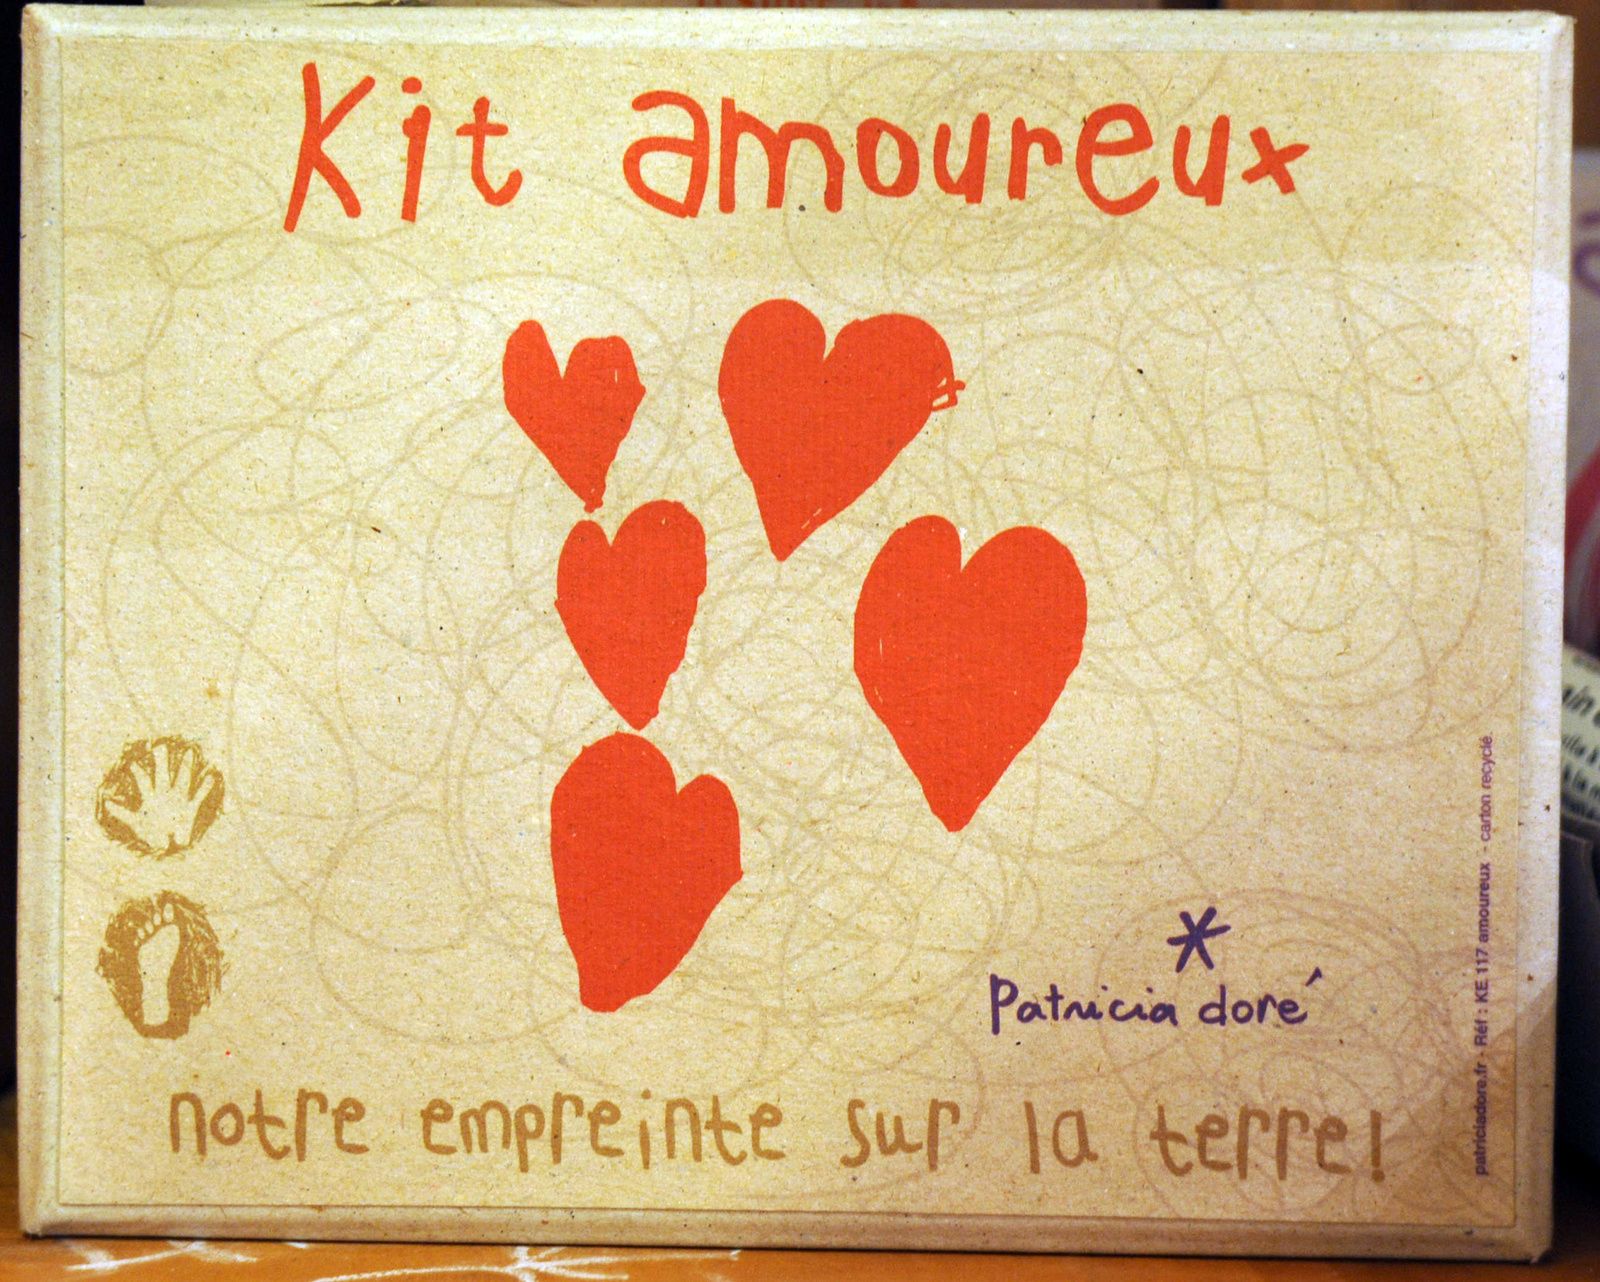 Kit amoureux
* Patricia doré
notre empreinte sur la terre!
patriciadore.fr - Réf : KE 117 amoureux - carton recyclé.